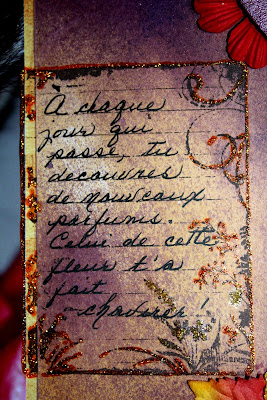 À chaque
jour qui
passe, tu
découvres
de nouveaux
parfums.
Celui de cette
fleur t'a
fait
chavirer!